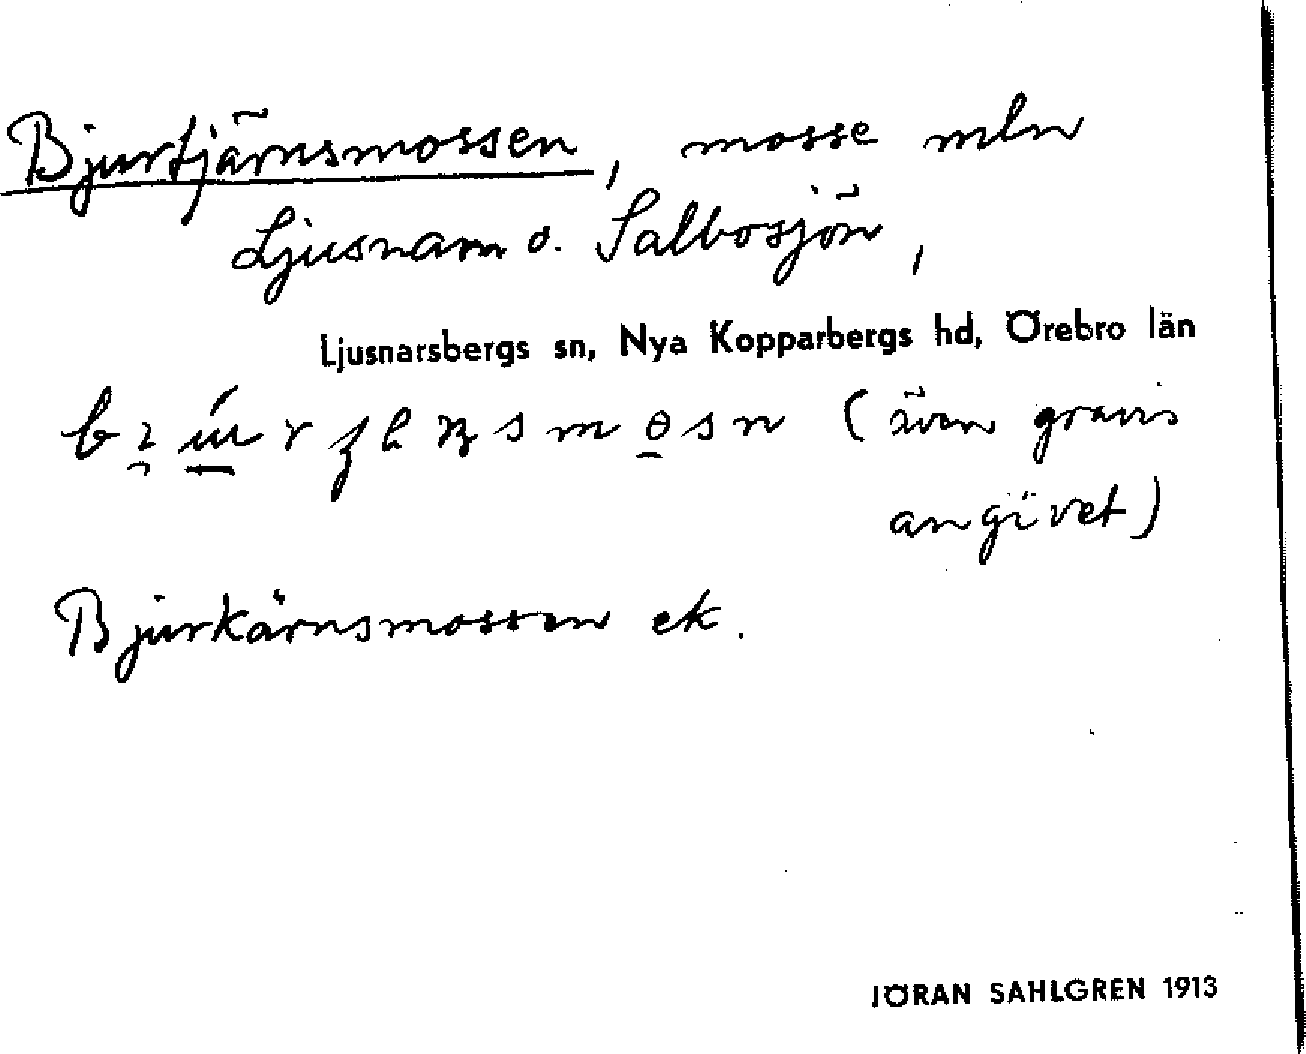 Bjurtjärnsmossen, mosse mln
Ljusnarn o. Salbosjön,
Ljusnarsbergs sn, Nya Kopparbergs hd, Örebro län
(även gravis
angivet)
Bjurkärnsmossen ek.
JÖRAN SAHLGREN 1913